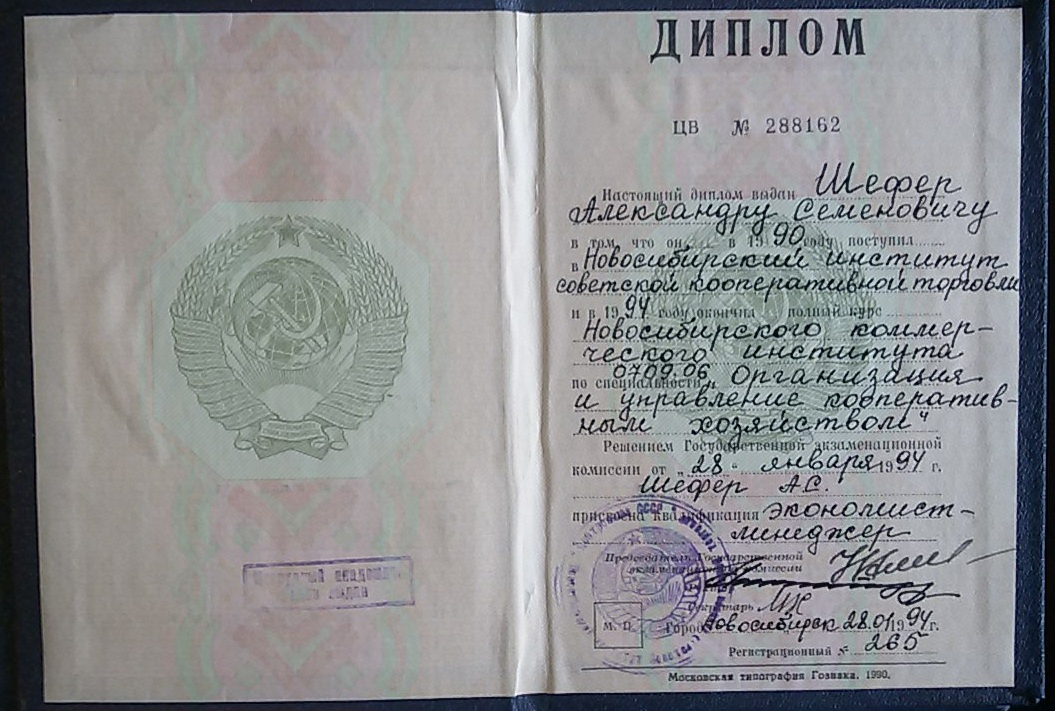 ДИПЛОМ
ЦВ № 288162
Настоящий диплом выдан Шефер
Александру Семеновичу
в том, что он в 1990 году поступил
в Новосибирский институт
советской кооперативной торговли
и в 1994 году окончил полный курс
Новосибирского коммер-
ческого института
по специальности 07.09.06 „Организация
и управление кооператив-
ным хозяйством"
Решением Государственной экзаменационной
комиссии от „28" января 1994 г.
Шефер А.С.
присвоена квалификация экономист-
менеджер
Председатель Государственной
экзаменационной комиссии
Секретарь
М. П. Город Новосибирск 28.01 1994 г.
Регистрационный № 265
Московская типография Гознака. 1990.